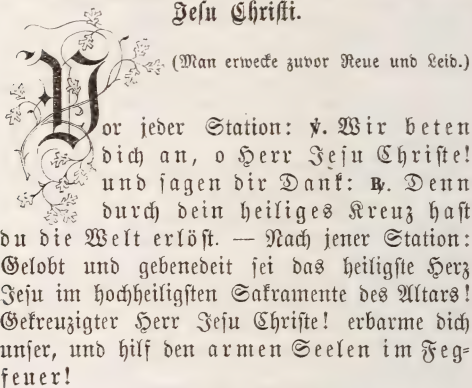 Jesu Christi.
(Man erwecke zuvor Reue und Leid.)
Vor jeder Station: ℣. Wir beten
dich an, o Herr Jesu Christe!
und sagen dir Dank: ℟. Denn
durch dein heiliges Kreuz hast
du die Welt erlöst. — Nach jener Station:
Gelobt und gebenedeit sei das heiligste Herz
Jesu im hochheiligsten Sakramente des Altars!
Gekreuzigter Herr Jesu Christe! erbarme dich
unser, und hilf den armen Seelen im Feg-
feuer!